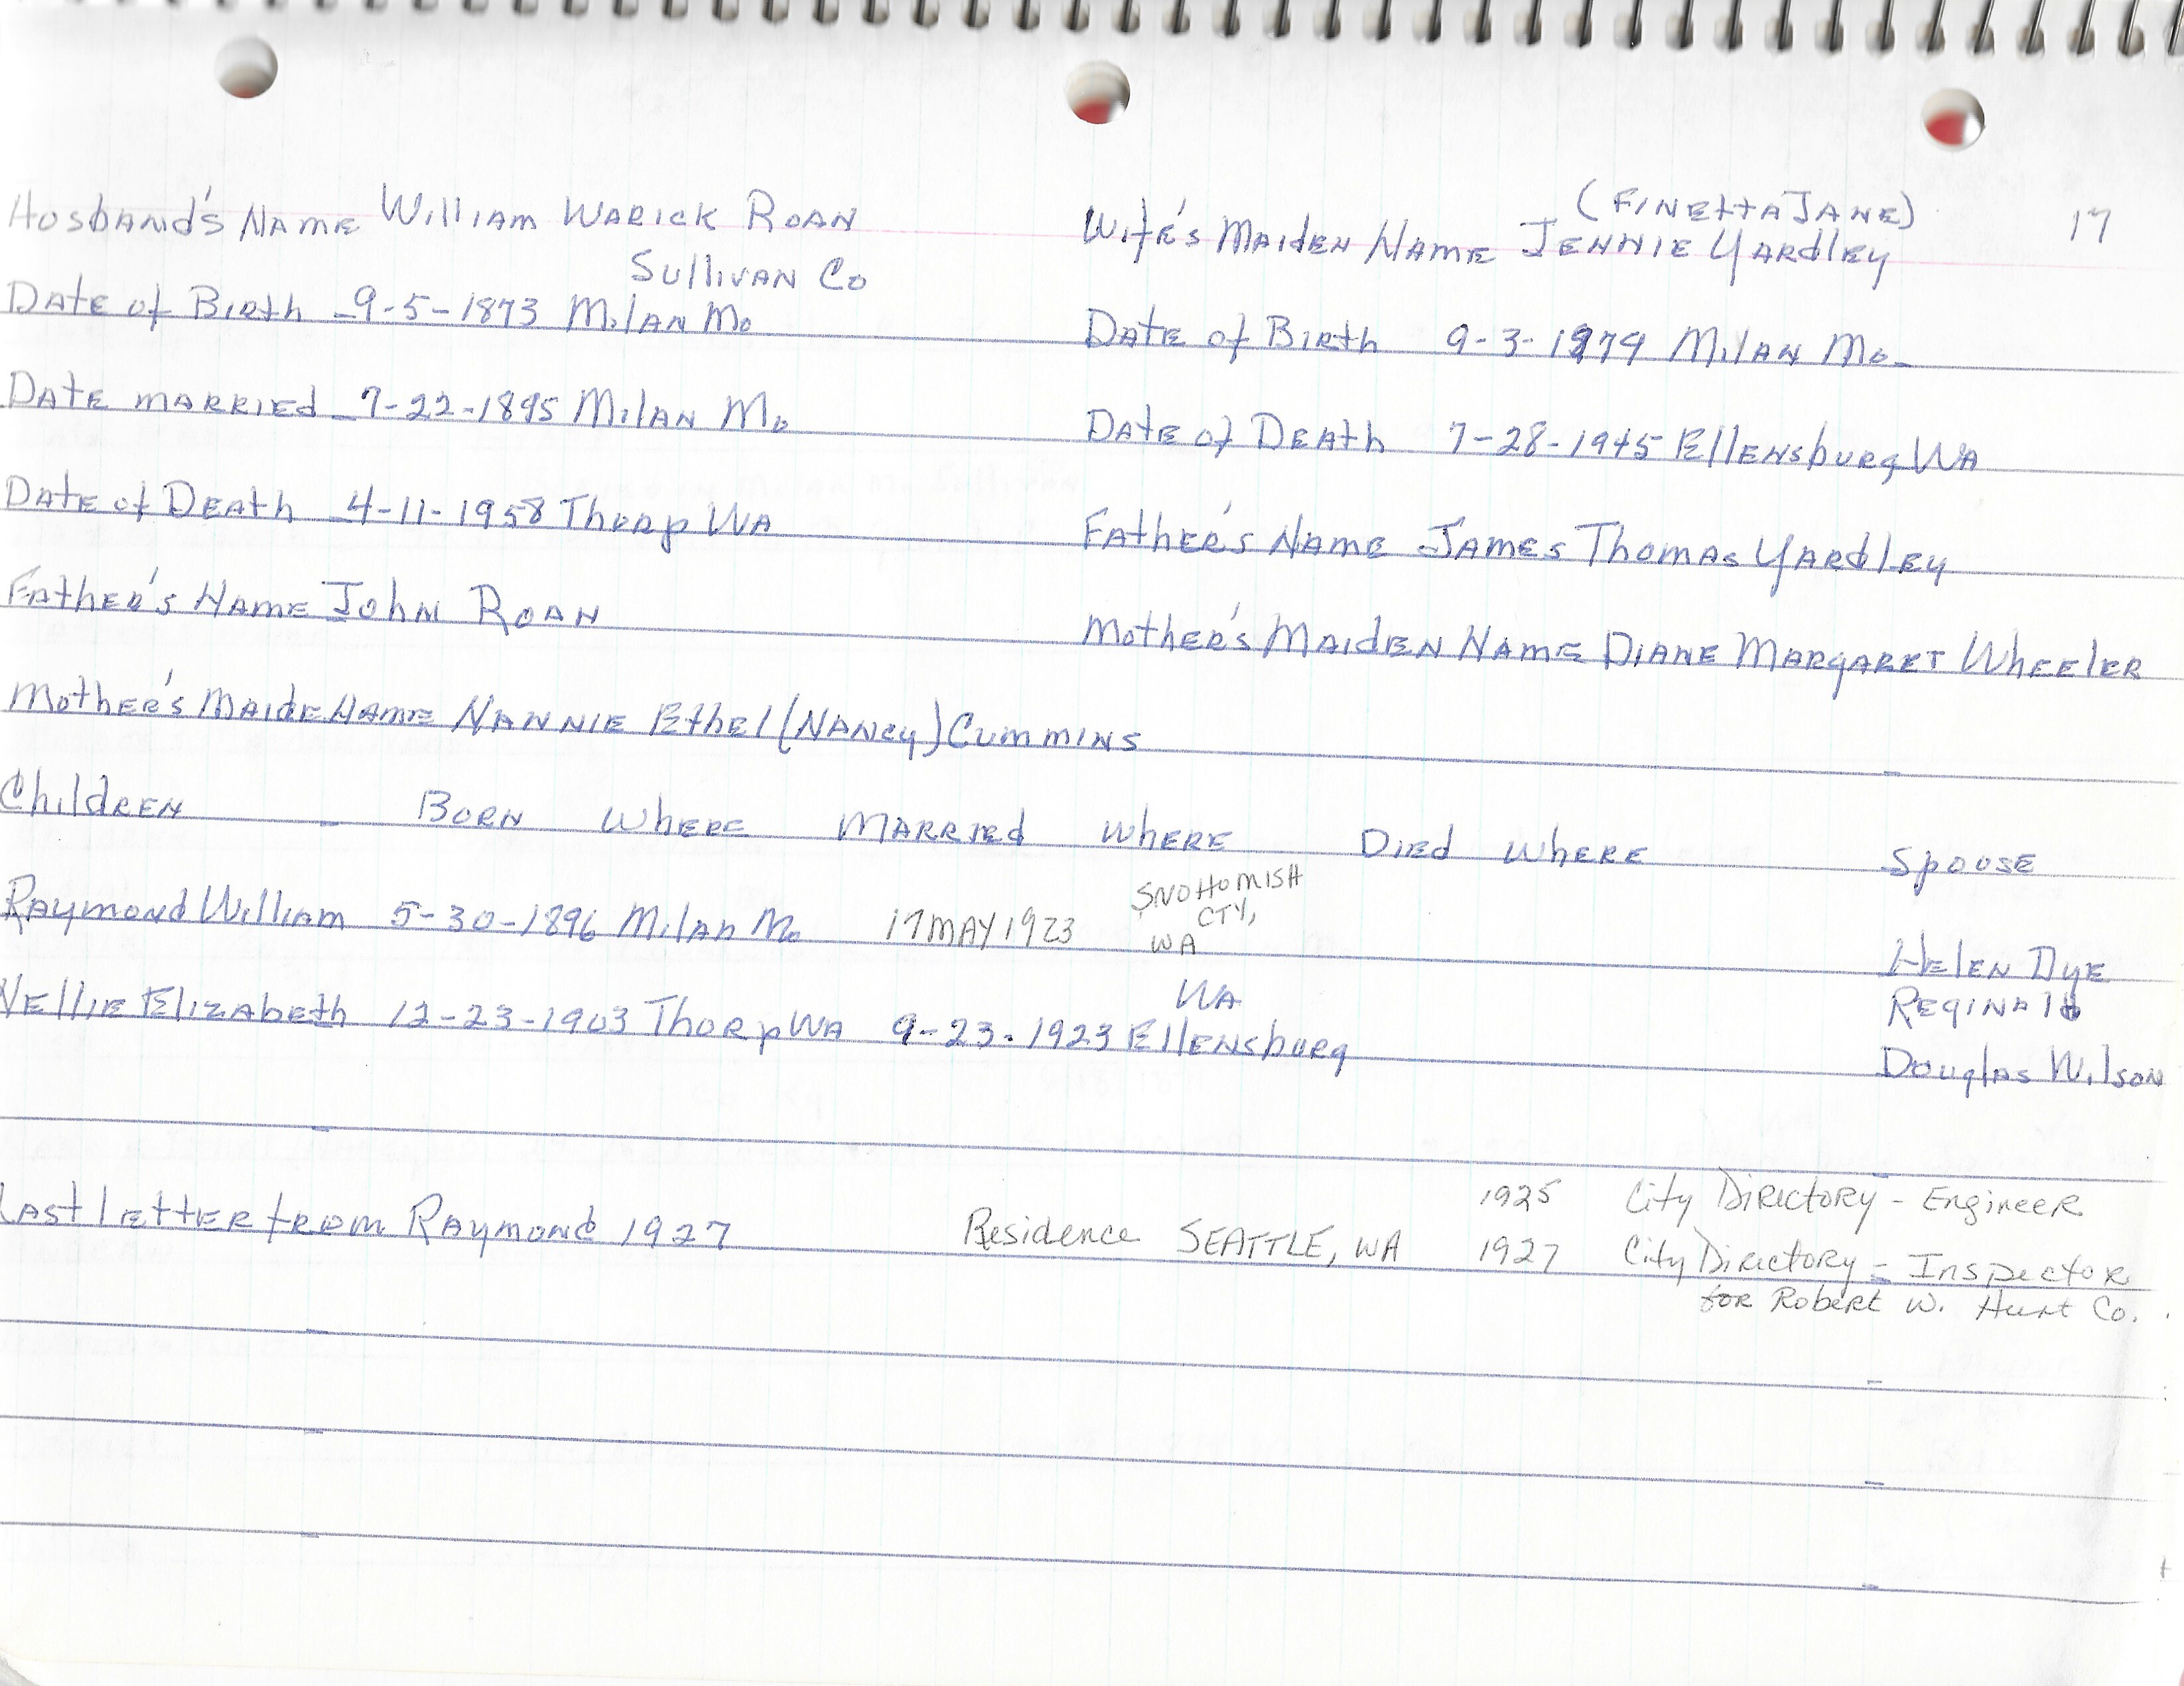 (FINEttA JANE)
Husband's NAME William WARICK ROAN
Wife's MAIDEN NAME JENNIE YARDLEY
17
Sullivan Co
Date of Birth 9-5-1873 Milan Mo
Date of Birth 9-3-1879 Milan Mo.
Date married 7-22-1895 Milan Mo
Date of Death 7-28-1945 Ellensburg WA
Date of Death 4-11-1958 Thorp WA
Father's Name James Thomas Yardley
Father's Name John Roan
Mother's Maiden Name Diane Margaret Wheeler
Mother's Maide Name Nannie Ethel (Nancy) Cummins
Children Born Where Married Where Died Where Spouse
SNOHOMISH
CTY,
Raymond William 5-30-1896 Milan Mo 17 MAY 1923 WA
Helen Dye
WA
Reginald
Nellie Elizabeth 12-23-1903 Thorp WA 9-23-1923 Ellensburg
Douglas Wilson
1925 City Directory - Engineer
Last letter from Raymond 1927 Residence SEATTLE, WA 1927 City Directory - Inspector
for Robert W. Hunt Co.